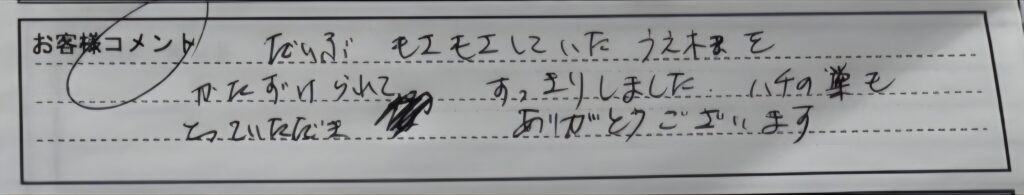 お客様コメント だいぶ モエモエしていた うえ木まを
かたずけられて すっきりしました ハチの巣も
とっていただき ありがとうございます